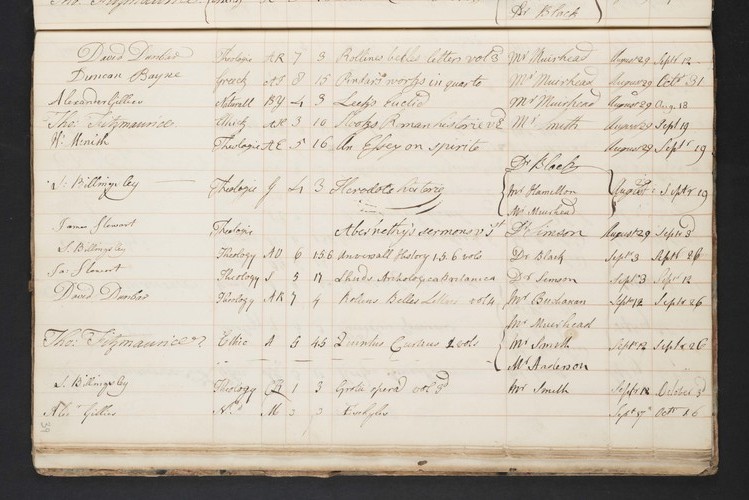 Dr Black
David Dunbar Theologie AR 7 3 Rollines belles letters vol 3 Mr Muirhead August 29 Septr 12
Duncan Bayne Greek AS 8 15 Pindars works in quarto Mr Muirhead August 29 Octr 31
Alexander Gillies Naturall BY 4 3 Mr Muirhead August 29 Aug. 18
Tho: Fitzmaurice 3 10 Hooks Roman historie v 2 Mr Smith August 29 Sept 19
Wm Minith Theologie AE 5 16 An Essey on spirits August 29 Septr 19
Dr Black
S: Billingsley Theologie G 4 3 Herodots historie Mr Hamilton August Septr 19
Mr Muirhead
James Stewart Theologie Abernethy's sermons v 1st Dr Simson August 29 Septr 3d
S. Billingsley Theology AU 6 1.5.6 Universall History 1.5.6 vols Dr Black Septr 3 Septr 26
Jas Stewart Theology S 5 17 Archeologica Britanica Dr Simson Septr 3 Septr 12
David Dunbar Theology AR 7 4 Rolins Belles Letters vol 4 Mr Buchanan Septr 12 Septr 26
Mr Muirhead
Tho: Fitzmaurice Ethic A 5 45 Quintus Curtius 2 vols Mr Smith Septr 12 Septr 26
Mr Anderson
S. Billingsley Theology 1 3 Grotii opera vol 3d Mr Smith Septr 12 October 3d
Alex Gillies M Septr 17 Octr 16
39